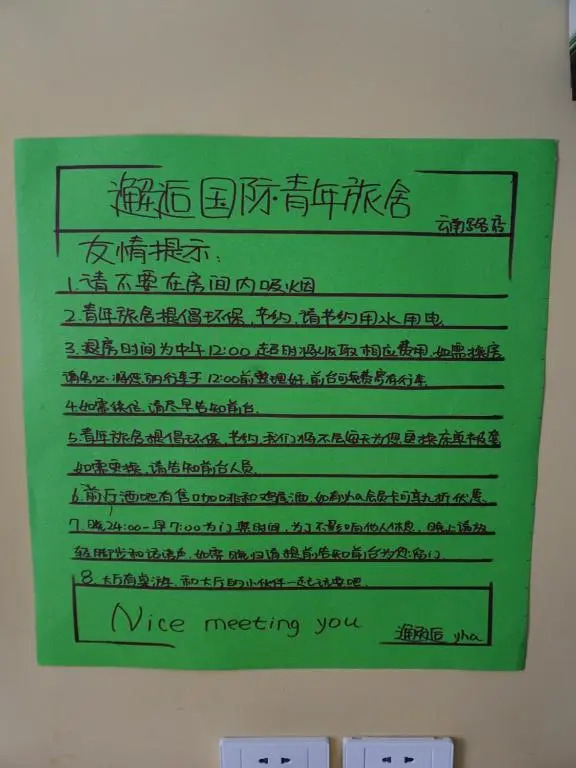 邂逅国际·青年旅舍
云南路店
友情提示:
1.请不要在房间内吸烟
2.青年旅舍提倡环保,节约,请节约用水用电
3.退房时间为中午12:00超时将收取相应费用,如需换房
请务必将您的行李于12:00前整理好,前台可免费寄存行李
4.如需续住,请尽早告知前台.
5.青年旅舍提倡环保,节约,我们将不会每天为您更换床单被套
如需更换,请告知前台人员.
6.前厅酒吧有售咖啡和鸡尾酒,如有yha会员卡可享九折优惠
7.晚24:00-早7:00为门禁时间,为了不影响他人休息,晚上请放
轻脚步和话语声,如需晚归请提前告知前台为您留门
8.大厅有桌游,和大厅的小伙伴一起玩耍吧.
Nice meeting you
邂逅 yha